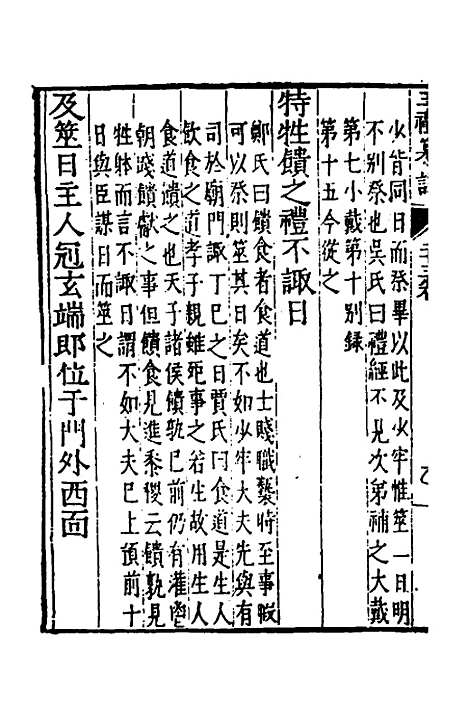 三禮纂註
火皆同日而祭畢以此及少牢惟筮一日明
不別祭也吳氏曰禮經不見次第補之大戴
第七小戴第十別錄
第十五今從之
特牲饋之禮不諏日
鄭氏曰饋食者食道也士賤職䙝時至事暇
可以祭則筮其日矣不如少牢大夫先與有
司於廟門諏丁巳之日賈氏曰食道是生人
飲食之道孝子親雖死事之若生故用生人
食道饋之也天子諸侯饋孰已前仍有灌鬯
朝踐饋獻之事但饋食見進黍稷云饋孰見
牲體而言不諏日謂不如大夫巳上預前十
日與臣謀日而筮之
及筮日主人冠玄端即位于門外西面